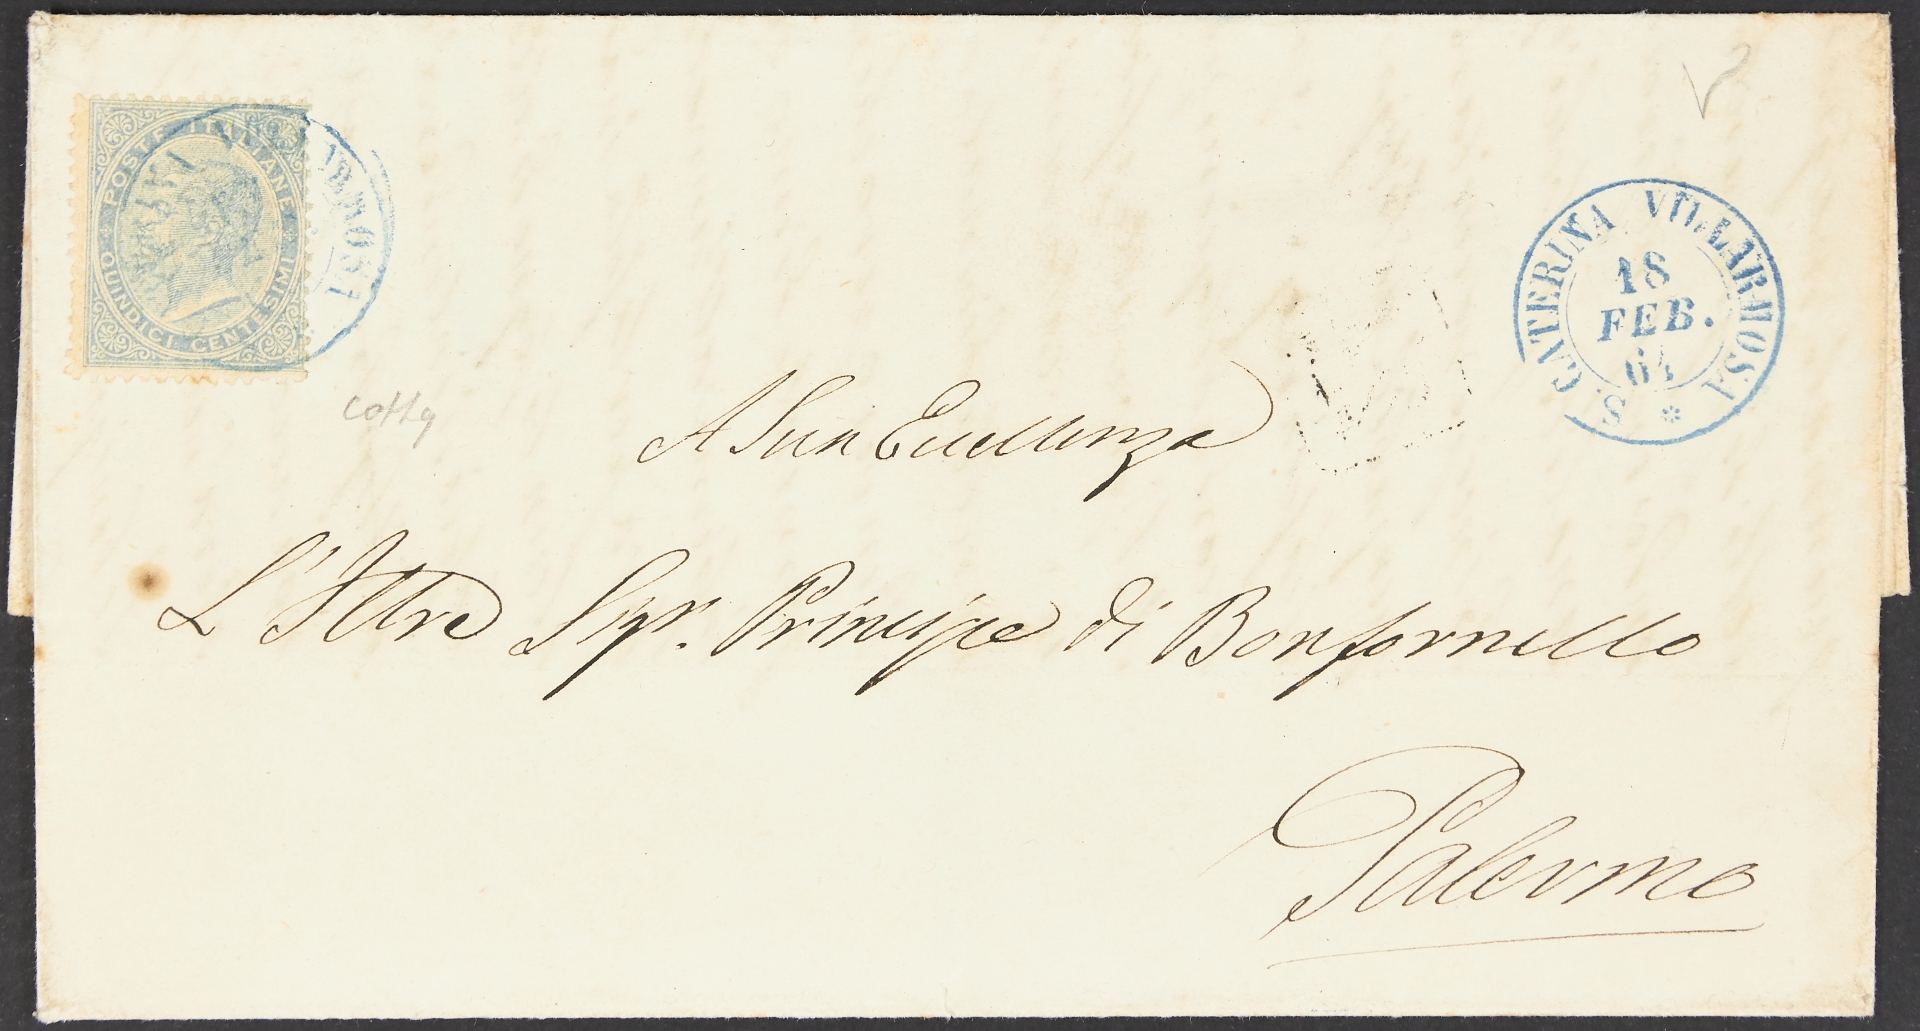 POSTE ITALIANE
QUINDICI CENTESIMI
S. CATERINA VILLARMOSA
18
FEB.
64
A Sua Eccellenza
L'Illtre Sigr. Principe di Bonfornello
Palermo